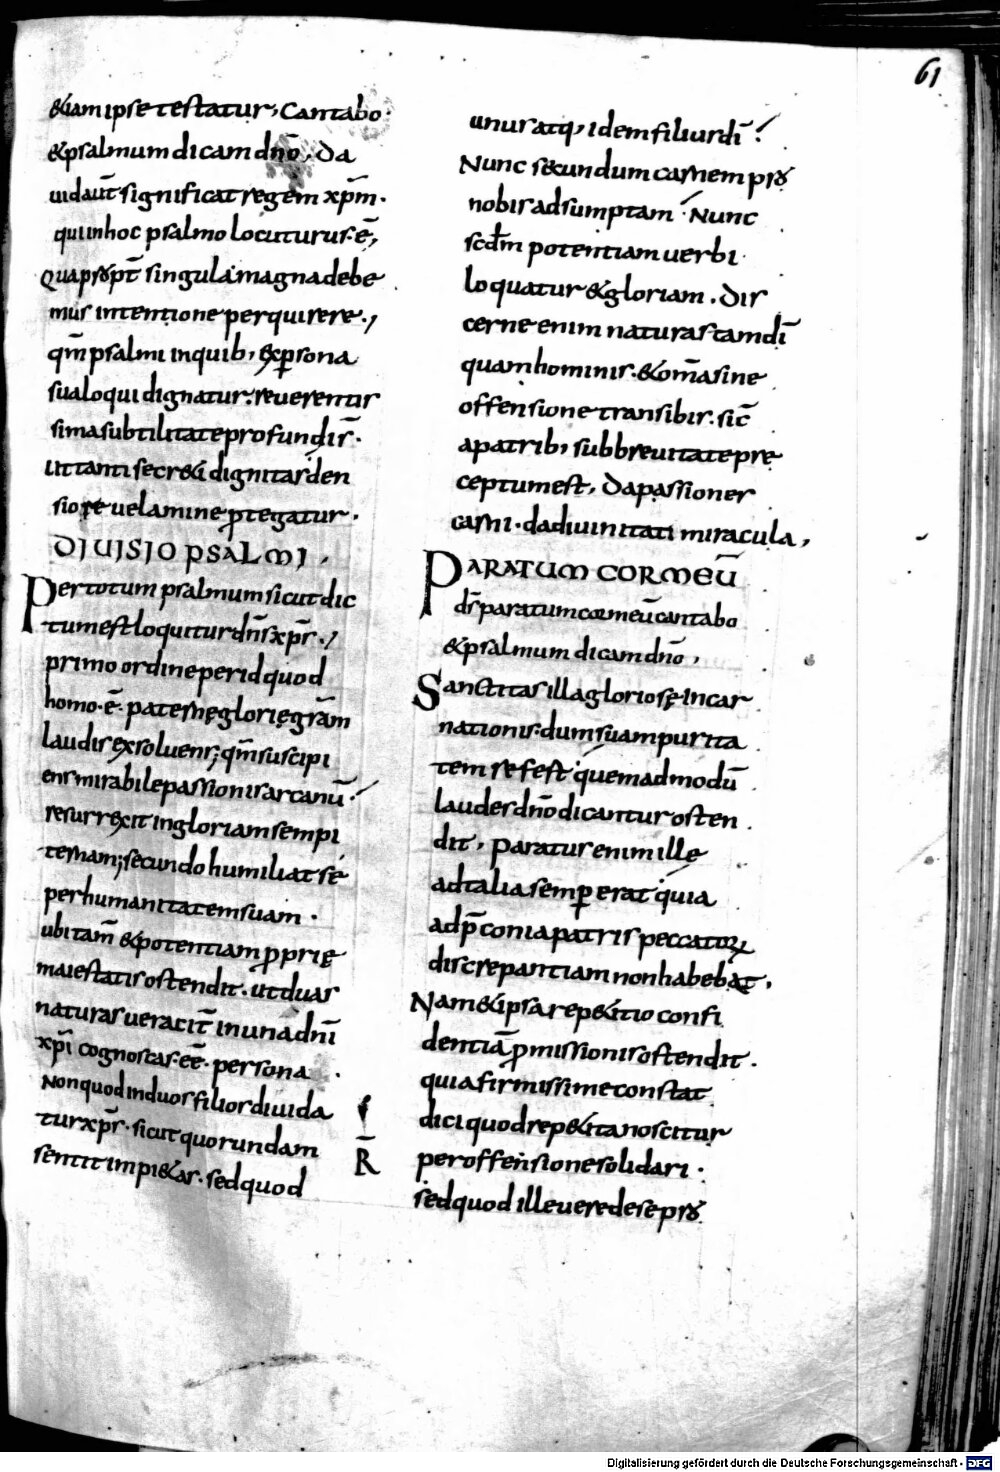 61
&iam ipse testatur, Cantabo
& psalmum dicam dn̄o, Da
uid aut̄ significat regem xp̄m.
qui in hoc psalmo locuturus.ē,
Quapropt̄ singula magna debe
mus intentione perquirere.,
qm̄ psalmi in quib, ex persona
sua loqui dignatur. reuerentis
sima subtilitate profundi s̄.
Ut tanti secr&i dignitas den
siore uelamine ꝓtegatur.
DIUISIO PSALMI,
Per totum psalmum sicut dic
tum est loquitur dn̄s xp̄s.,
primo ordine per id quod
homo.ē. paternę glorię gr̄am
laudis exsoluens; qm̄ suscipi
ens mirabile passionis arcanū.
resurrexit in gloriam sempi
ternam; secundo humiliat sé
per humanitatem suam.
ubi tam̄ & potentiam ꝓprię
maiestatis ostendit. ut duas
naturas ueracit̄ in una dn̄i
xp̄i cognoscas.eē. persona.
Non quod in duos filios diuida
tur xp̄s. sicut quorundam
sentit impi&as. sed quod
R̄
unus atq, idem filius dī!
Nunc secundum carnem pro
nobis adsumptam. Nunc
scdm̄ potentiam uerbi
loquatur & gloriam. Dis
cerne enim naturas tam dī
quam hominis. & om̄a sine
offensione transibis. sic̄
a patrib, sub breuitate pre
ceptum est, Da passiones
carni. da diuinitati miracula,
PARATUM COR MEŪ
ds̄ paratum cor meū cantabo
& psalmum dicam dn̄o,
Sanctitas illa gloriosę incar
nationis. dum suam purita
tem sefest quemadmodū
laudes dn̄o dicantur osten
dit, Paratus enim illę
ad talia semꝑ erat quia
ad p̄conia patris peccatorꝝ
discrepantiam non habebat,
Nam & ipsa rep&itio confi
dentiā ꝓmissionis ostendit.
quia firmissime constat
dici quod rep&ita noscitur
per offensione solidari.
sed quod ille uere de se pro
Digitalisierung gefördert durch die Deutsche Forschungsgemeinschaft - DFG